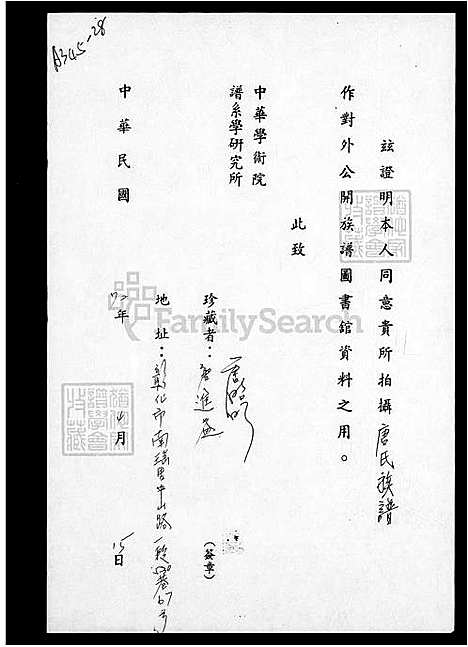 A345-28
茲證明本人同意貴所拍攝唐氏族譜
作對外公開族譜圖書館資料之用。
此致
中華學術院
譜系學研究所
珍藏者：唐進益
（簽章）
地址：彰化市南瑤里中山路一段
巷67号
中華民國
72年
4月
15日
FamilySearch